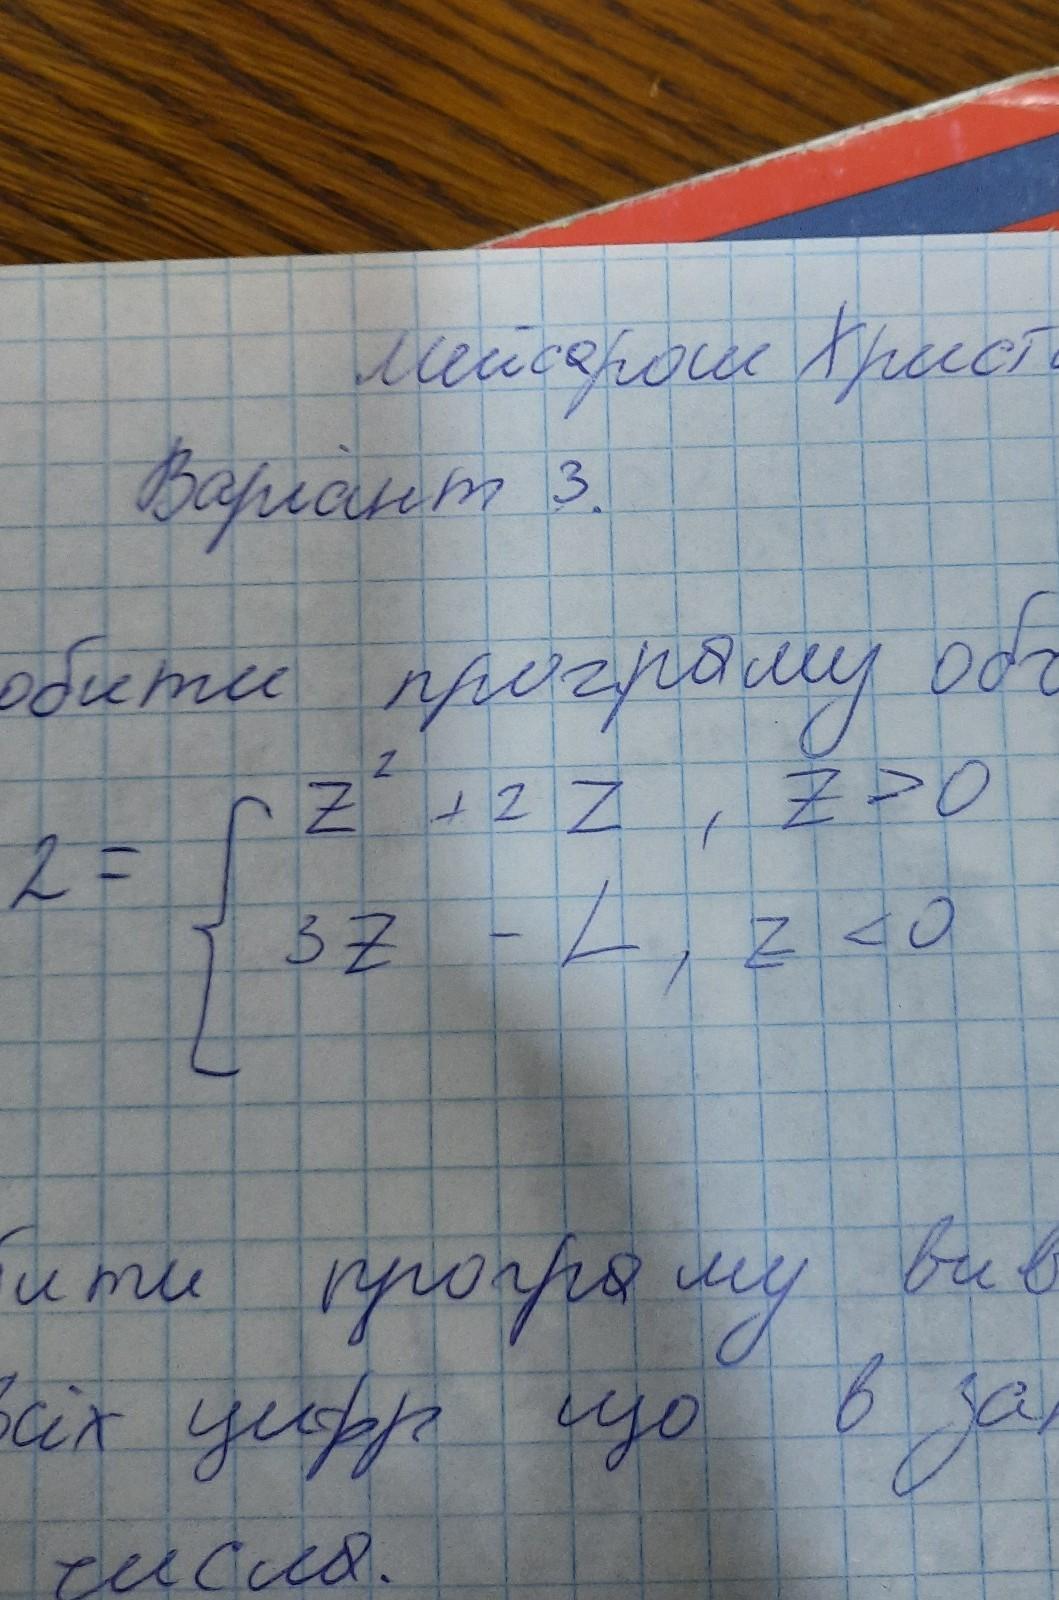 Мейсарош Христ
Варіант 3.
обити програму обч
2 = { z² + 2z , z > 0
3z - L , z < 0
ити програму вив
всіх цифр що в за
числа.